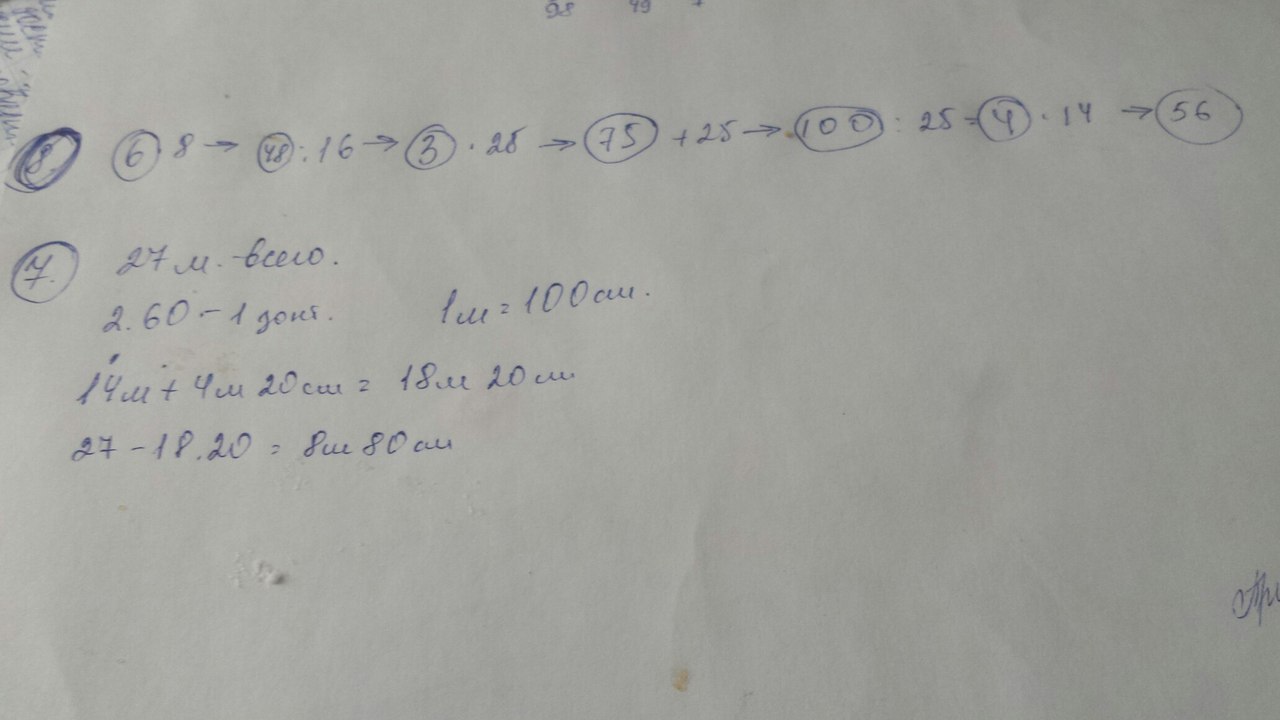 98 49
8. 6 8 → 48 : 16 → 3 · 25 → 75 + 25 → 100 : 25 - 4 · 14 → 56
7. 27 м. - всего.
2.60 - 1 зонт. 1м = 100 см.
14м + 4м 20см = 18м 20см
27 - 18.20 = 8м 80см